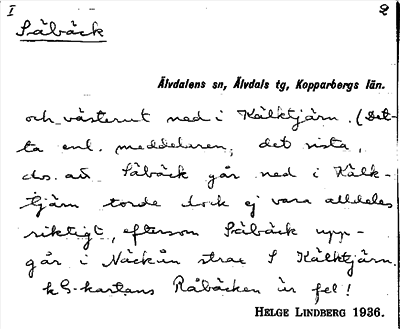 I 2
Såbäck
Älvdalens sn, Älvdals tg, Kopparbergs län.
och västerut ned i Kälktjärn. (Det-
ta enl. meddelaren; det sista,
dvs. att Såbäck går ned i Kälk-
tjärn torde dock ej vara alldeles
riktigt, eftersom Såbäck upp-
går i Näckån strax S Kälktjärn.
kG-kartans Råbäcken är fel!
HELGE LINDBERG 1936.